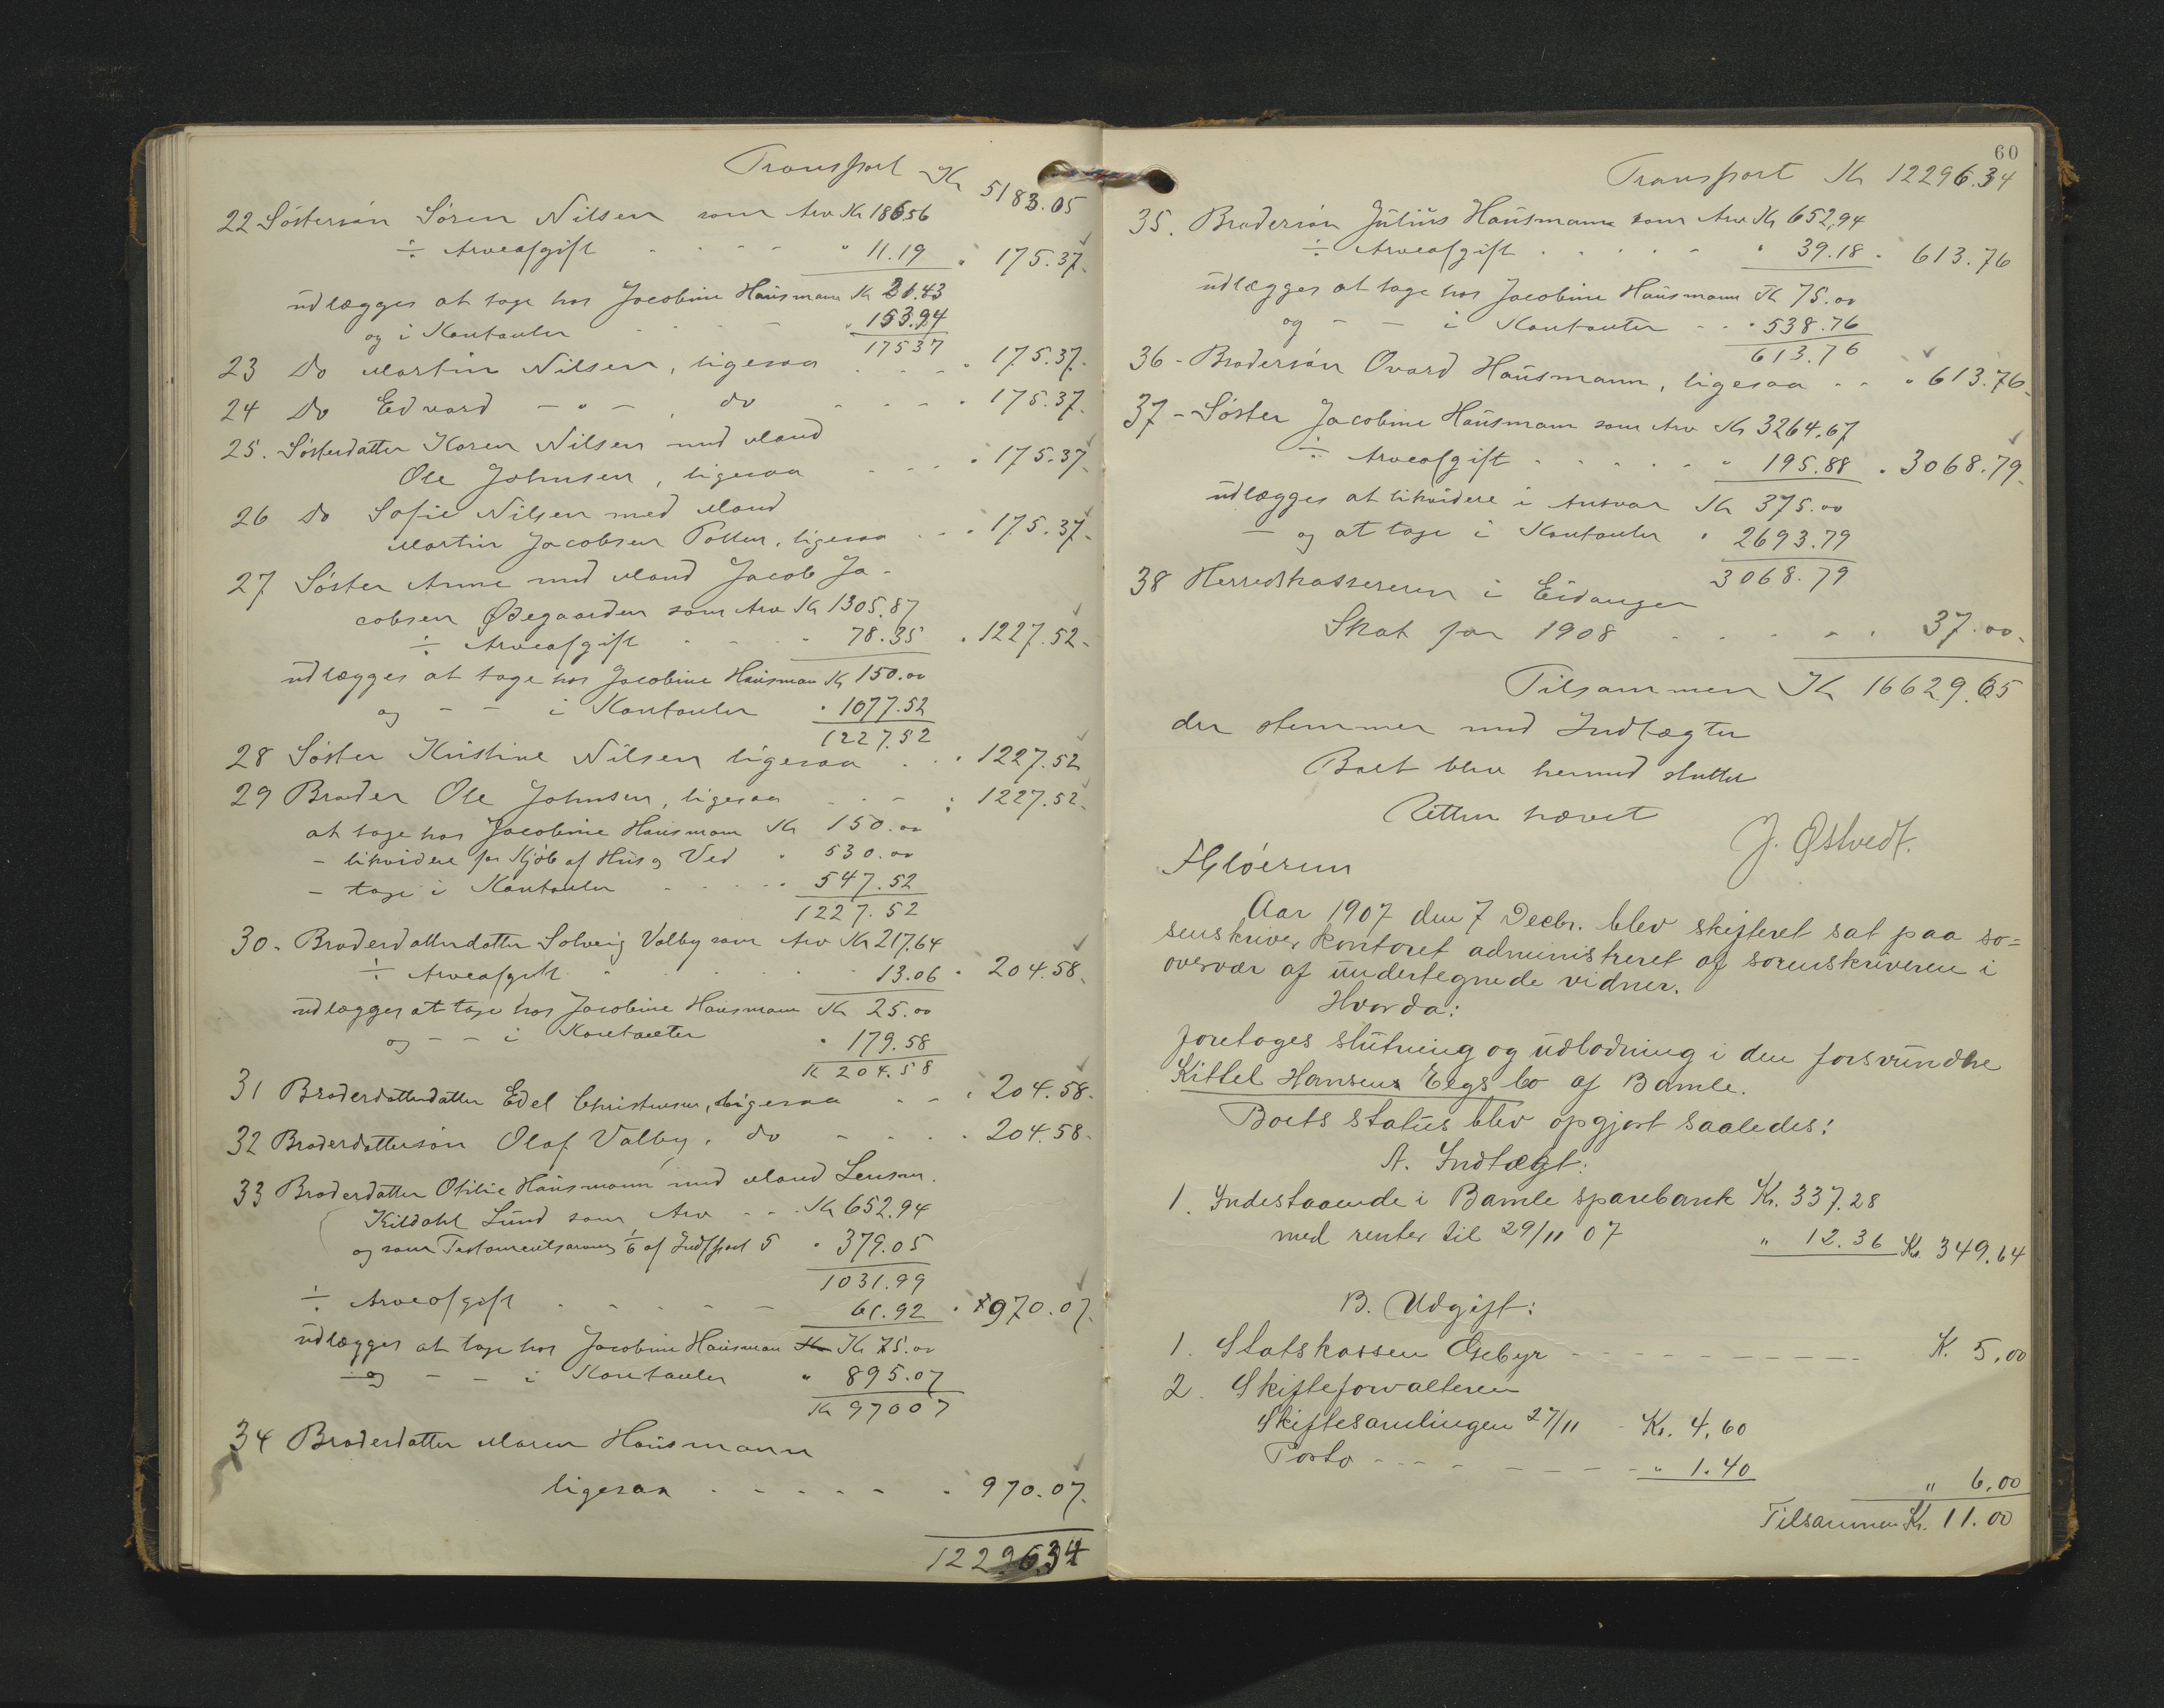 Transport Kr 5183.05
22 Søstersøn Søren Nilsen som Arv Kr 186.56
÷ Arveafgift " 11.19 " 175.37
udlægges at tage hos Jacobine Hausmann Kr 21.43
og i Kontanter " 153.94
175 37
23 Do Martin Nilsen, ligesaa " 175.37
24 Do Edvard - " -, do " 175.37
25. Søsterdatter Karen Nilsen med Mand
Ole Johnsen, ligesaa " 175.37
26 Do Sofie Nilsen med Mand
Martin Jacobsen Tollen, ligesaa " 175.37
27 Søster Anne med Mand Jacob Ja-
cobsen Ødegaarden som Arv Kr 1305.87
÷ Arveafgift " 78.35 " 1227.52
udlægges at tage hos Jacobine Hausman Kr 150.00
og - - i Kontanter " 1077.52
1227.52
28 Søster Kristine Nilsen ligesaa " 1227.52
29 Broder Ole Johnsen, ligesaa " 1227.52
at tage hos Jacobine Hausmann Kr 150.00
- likvidere for Kjøb af Hus og Ved " 530.00
- tage i Kontanter " 547.52
1227.52
30. Broderdatterdatter Solveig Valby som Arv Kr 217.64
÷ Arveafgift " 13.06 " 204.58
udlægges at tage hos Jacobine Hausmann Kr 25.00
og - - i Kontanter " 179.58
Kr 204.58
31 Broderdatterdatter Edel Christensen, ligesaa " 204.58
32 Broderdattersøn Olaf Valby, do " 204.58
33 Broderdatter Otilie Hausmann med Mand Lensm.
Kildahl Lund som Arv Kr 652.94
og som Testamentsarving 1/6 af Indtpost 5 " 379.05
1031.99
÷ Arveafgift 61.92 " 970.07
udlægges at tage hos Jacobine Hausman Kr 75.00
og - - i Kontanter " 895.07
Kr 970 07
34 Broderdatter Maren Hausmann
ligesaa " 970.07
12296.34
60
Transport Kr 12296.34
35. Brodersøn Julius Hausmann som Arv Kr 652,94
÷ Arveafgift " 39.18 " 613.76
udlægges at tage hos Jacobine Hausmann Kr 75.00
og - - i Kontanter " 538.76
613.76
36 - Brodersøn Ovard Hausmann, ligesaa " 613.76
37 - Søster Jacobine Hausmann som Arv Kr 3264.67
÷ Arveafgift " 195.88 " 3068.79
udlægges at likvidere i Ansvar Kr 375.00
- og at tage i Kontanter " 2693.79
3068.79
38 Herredskassereren i Eidanger
Skat for 1908 " 37.00
Tilsammen Kr 16629.65
der stemmer med Indtægten
Boet blev hermed sluttet
Retten hævet
J. Østvedt.
Aar 1907 den 7 Decbr. blev skifteret sat paa so=
renskriver kontoret administreret af sorenskriveren i
overvær af undertegnede vidner.
Hvorda:
foretoges slutning og udlodning i den forsvundne
Kittel Hansens Eegs bo af Bamle.
Boets status blev opgjort saaledes:
A. Indtægt:
1. Indestaaende i Bamle sparebank Kr. 337.28
med renter til 29/11 07 " 12.36 Kr. 349.64
B. Udgift:
1. Statskassen Gebyr K. 5,00
2. Skifteforvalteren
Skiftesamlingen 27/11 Kr. 4,60
Porto " 1.40
" 6,00
Tilsammen Kr. 11.00